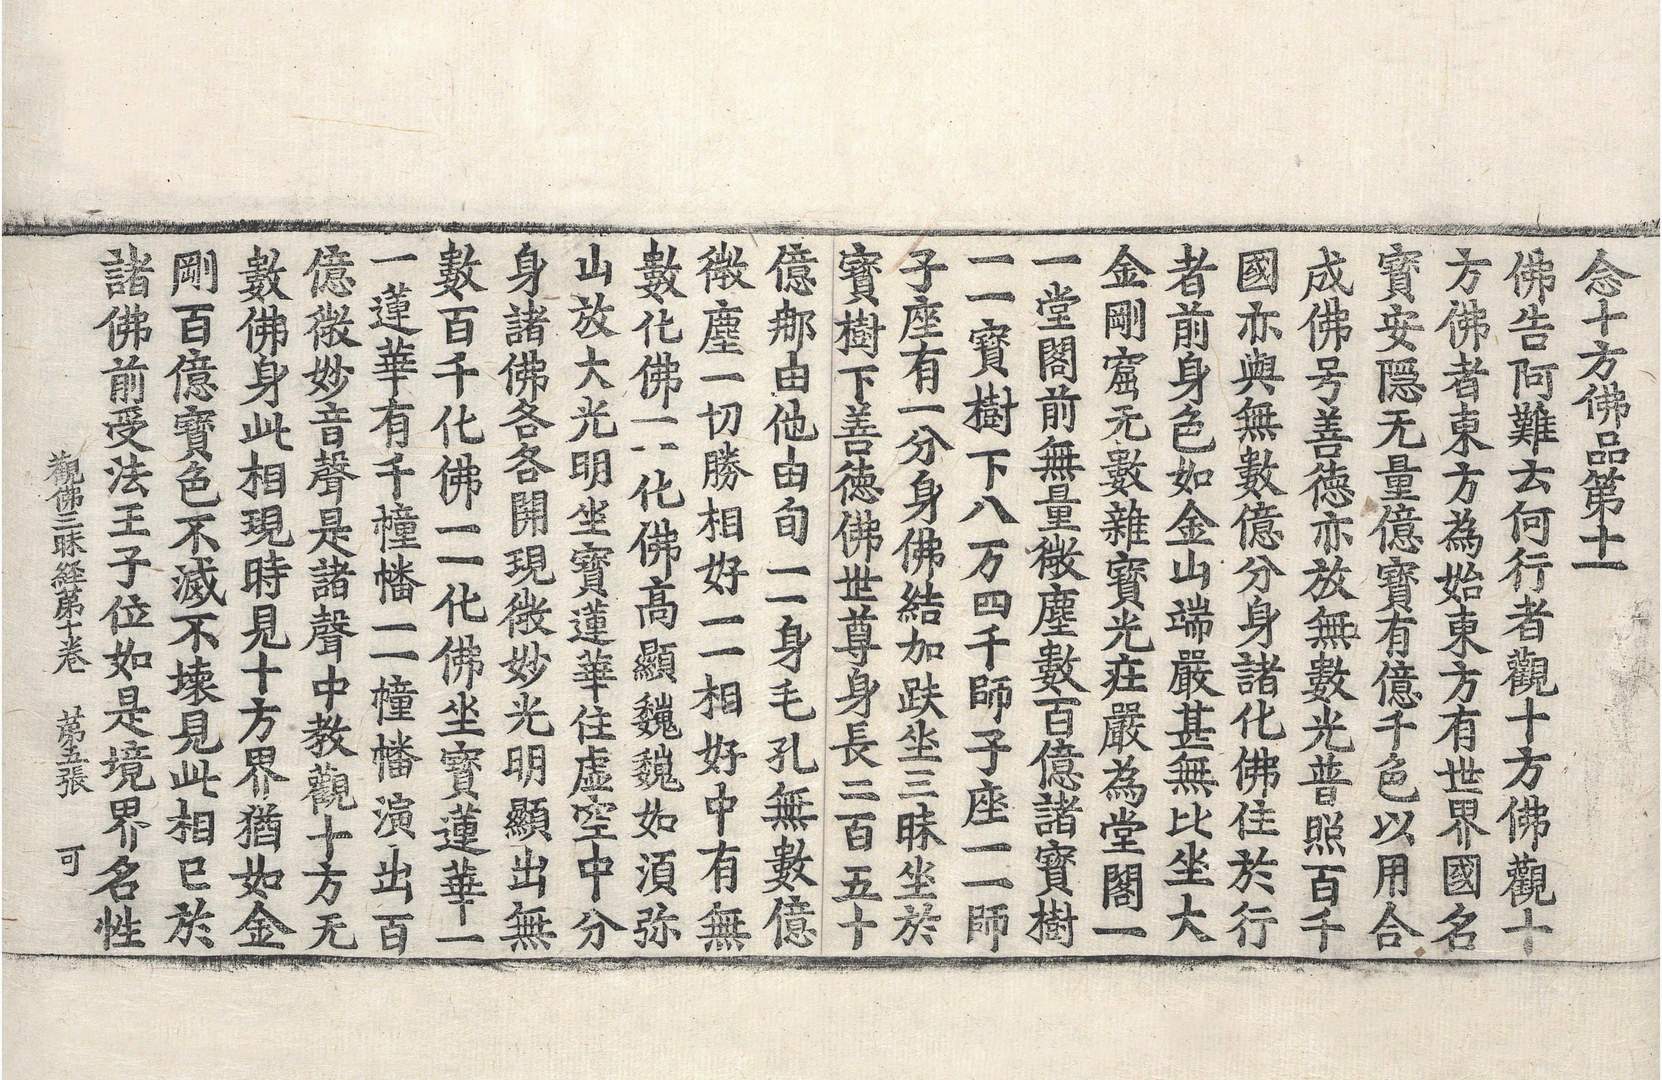 念十方佛品第十一
佛告阿難云何行者觀十方佛觀十
方佛者東方為始東方有世界國名
寳安隱无量億寳有億千色以用合
成佛号善徳亦放無數光普照百千
國亦與無數億分身諸化佛住於行
者前身色如金山端嚴甚無比坐大
金剛窟无數雜寳光莊嚴為堂閣一
一堂閣前無量微塵數百億諸寳樹
一一寳樹下八万四千師子座一一師
子座有一分身佛結加趺坐三昧坐於
寳樹下善徳佛世尊身長二百五十
億那由他由旬一一身毛孔無數億億
微塵一切勝相好一一相好中有無
數化佛一一化佛高顯巍巍如須弥
山放大光明坐寳蓮華住虛空中分
身諸佛各各開現微妙光明顯出無
數百千化佛一一化佛坐寳蓮華一
一蓮華有千幢幡一一幢幡演出百
億微妙音聲是諸聲中教觀十方无
數佛身此相現時見十方界猶如金
剛百億寳色不滅不壊見此相已於
諸佛前受法王子位如是境界名性
觀佛三昧経第十卷 第五張 可